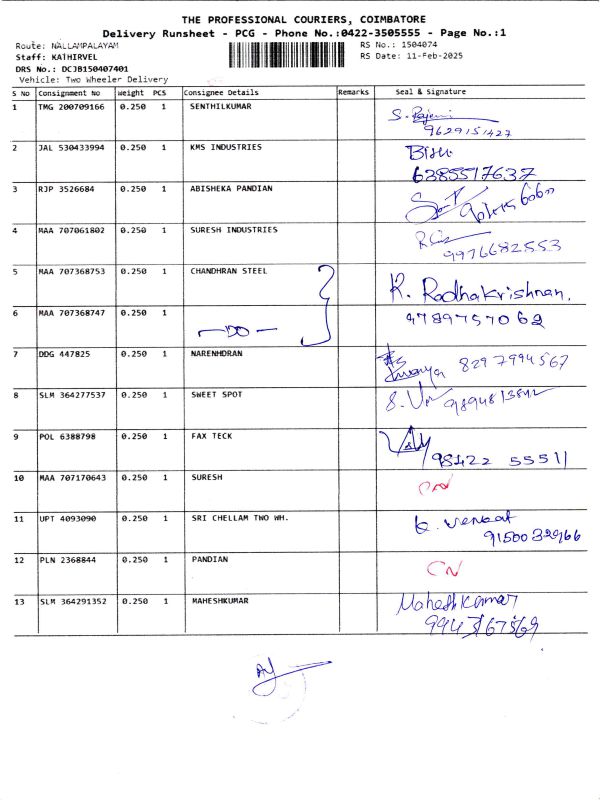 THE PROFESSIONAL COURIERS, COIMBATORE
Delivery Runsheet - PCG - Phone No.:0422-3505555 - Page No.:1
Route: NALLAMPALAYAM RS No.: 1504074
Staff: KATHIRVEL RS Date: 11-Feb-2025
DRS No.: DCJB150407401
Vehicle: Two Wheeler Delivery
S No Consignment No Weight PCS Consignee Details Remarks Seal & Signature
1 TMG 200709166 0.250 1 SENTHILKUMAR S. Rajeni
9629151427
2 JAL 530433994 0.250 1 KMS INDUSTRIES
6385517637
3 RJP 3526684 0.250 1 ABISHEKA PANDIAN
4 MAA 707061802 0.250 1 SURESH INDUSTRIES
9976682553
5 MAA 707368753 0.250 1 CHANDHRAN STEEL R. Radhakrishnan.
6 MAA 707368747 0.250 1 —DO— 9789757062
7 DDG 447825 0.250 1 NARENHDRAN 8297994567
8 SLM 364277537 0.250 1 SWEET SPOT
9 POL 6388798 0.250 1 FAX TECK
98422 55511
10 MAA 707170643 0.250 1 SURESH CN
11 UPT 4093090 0.250 1 SRI CHELLAM TWO WH. K. Venkat
9150032966
12 PLN 2368844 0.250 1 PANDIAN CN
13 SLM 364291352 0.250 1 MAHESHKUMAR Mahesh Kumar